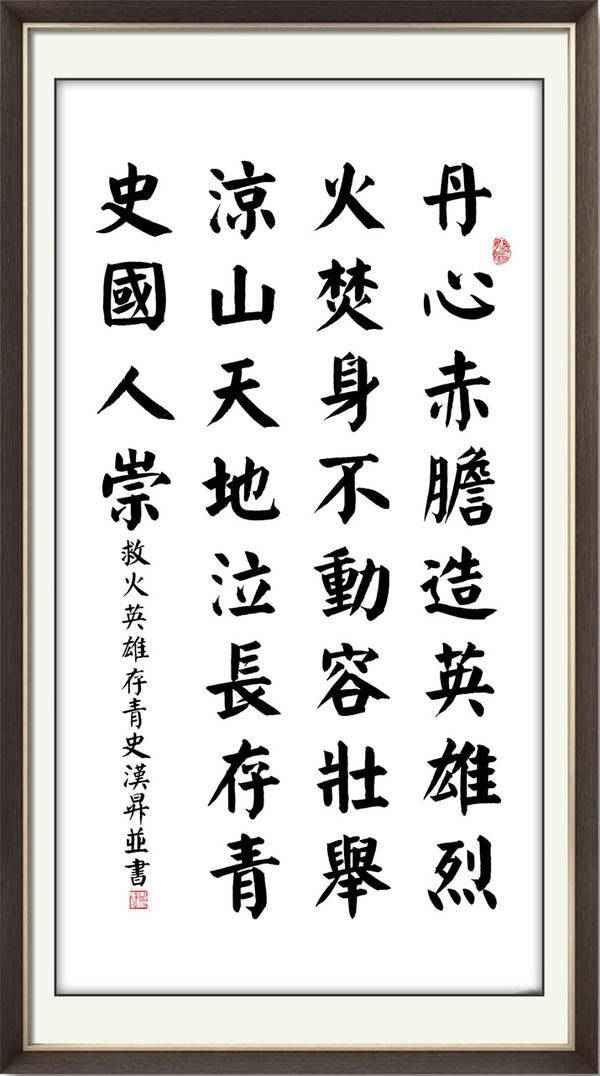 丹心赤膽造英雄烈
火焚身不動容壯舉
涼山天地泣長存青
史國人崇
救火英雄存青史漢昇並書